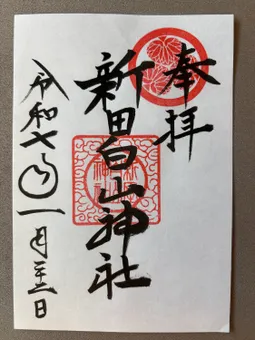 奉拝
新田白山神社
令和七年一月日